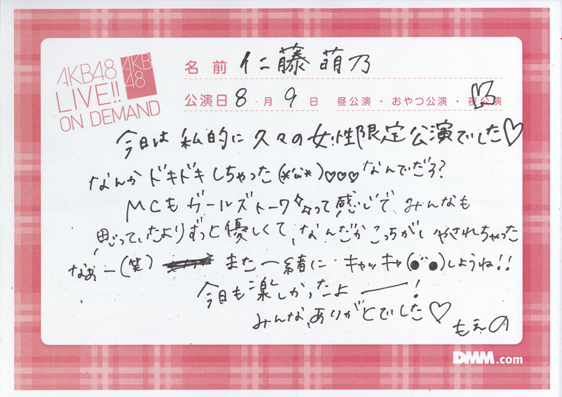 AKB48
LIVE!!
ON DEMAND
AKB
48
名前 仁藤萌乃
公演日 8 月 9 日 昼公演・おやつ公演・夜公演
今日は私的に久々の女性限定公演でした♡
なんかドキドキしちゃった(*´ω`*)♡♡♡なんでだろ?
MCもガールズトーク多々って感じで、みんなも
思っていたよりずっと優しくて、なんだかこっちがいやされちゃった
なぉー(笑) また一緒にキャッキャ(●´`●)しようね!!
今日も楽しかったよーー!
みんなありがとでした♡
もえの
DMM.com